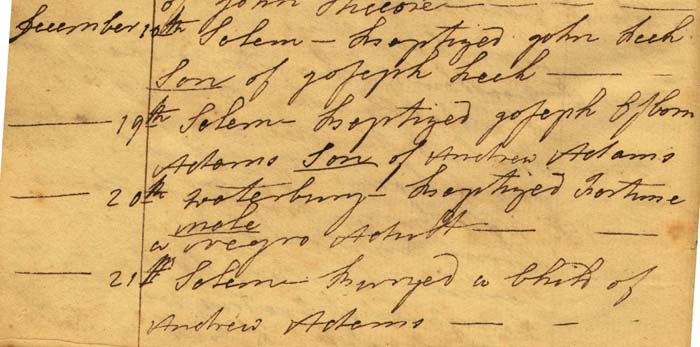 of John
December 10th Salem — baptized John Leek
Son of Joseph Leek —
— 19th Salem baptized Joseph Osborn
Adams Son of Andrew Adams
— 20th Waterbury baptized Fortune
male
a Negro Adult —
— 21st Salem buryed a Child of
Andrew Adams —